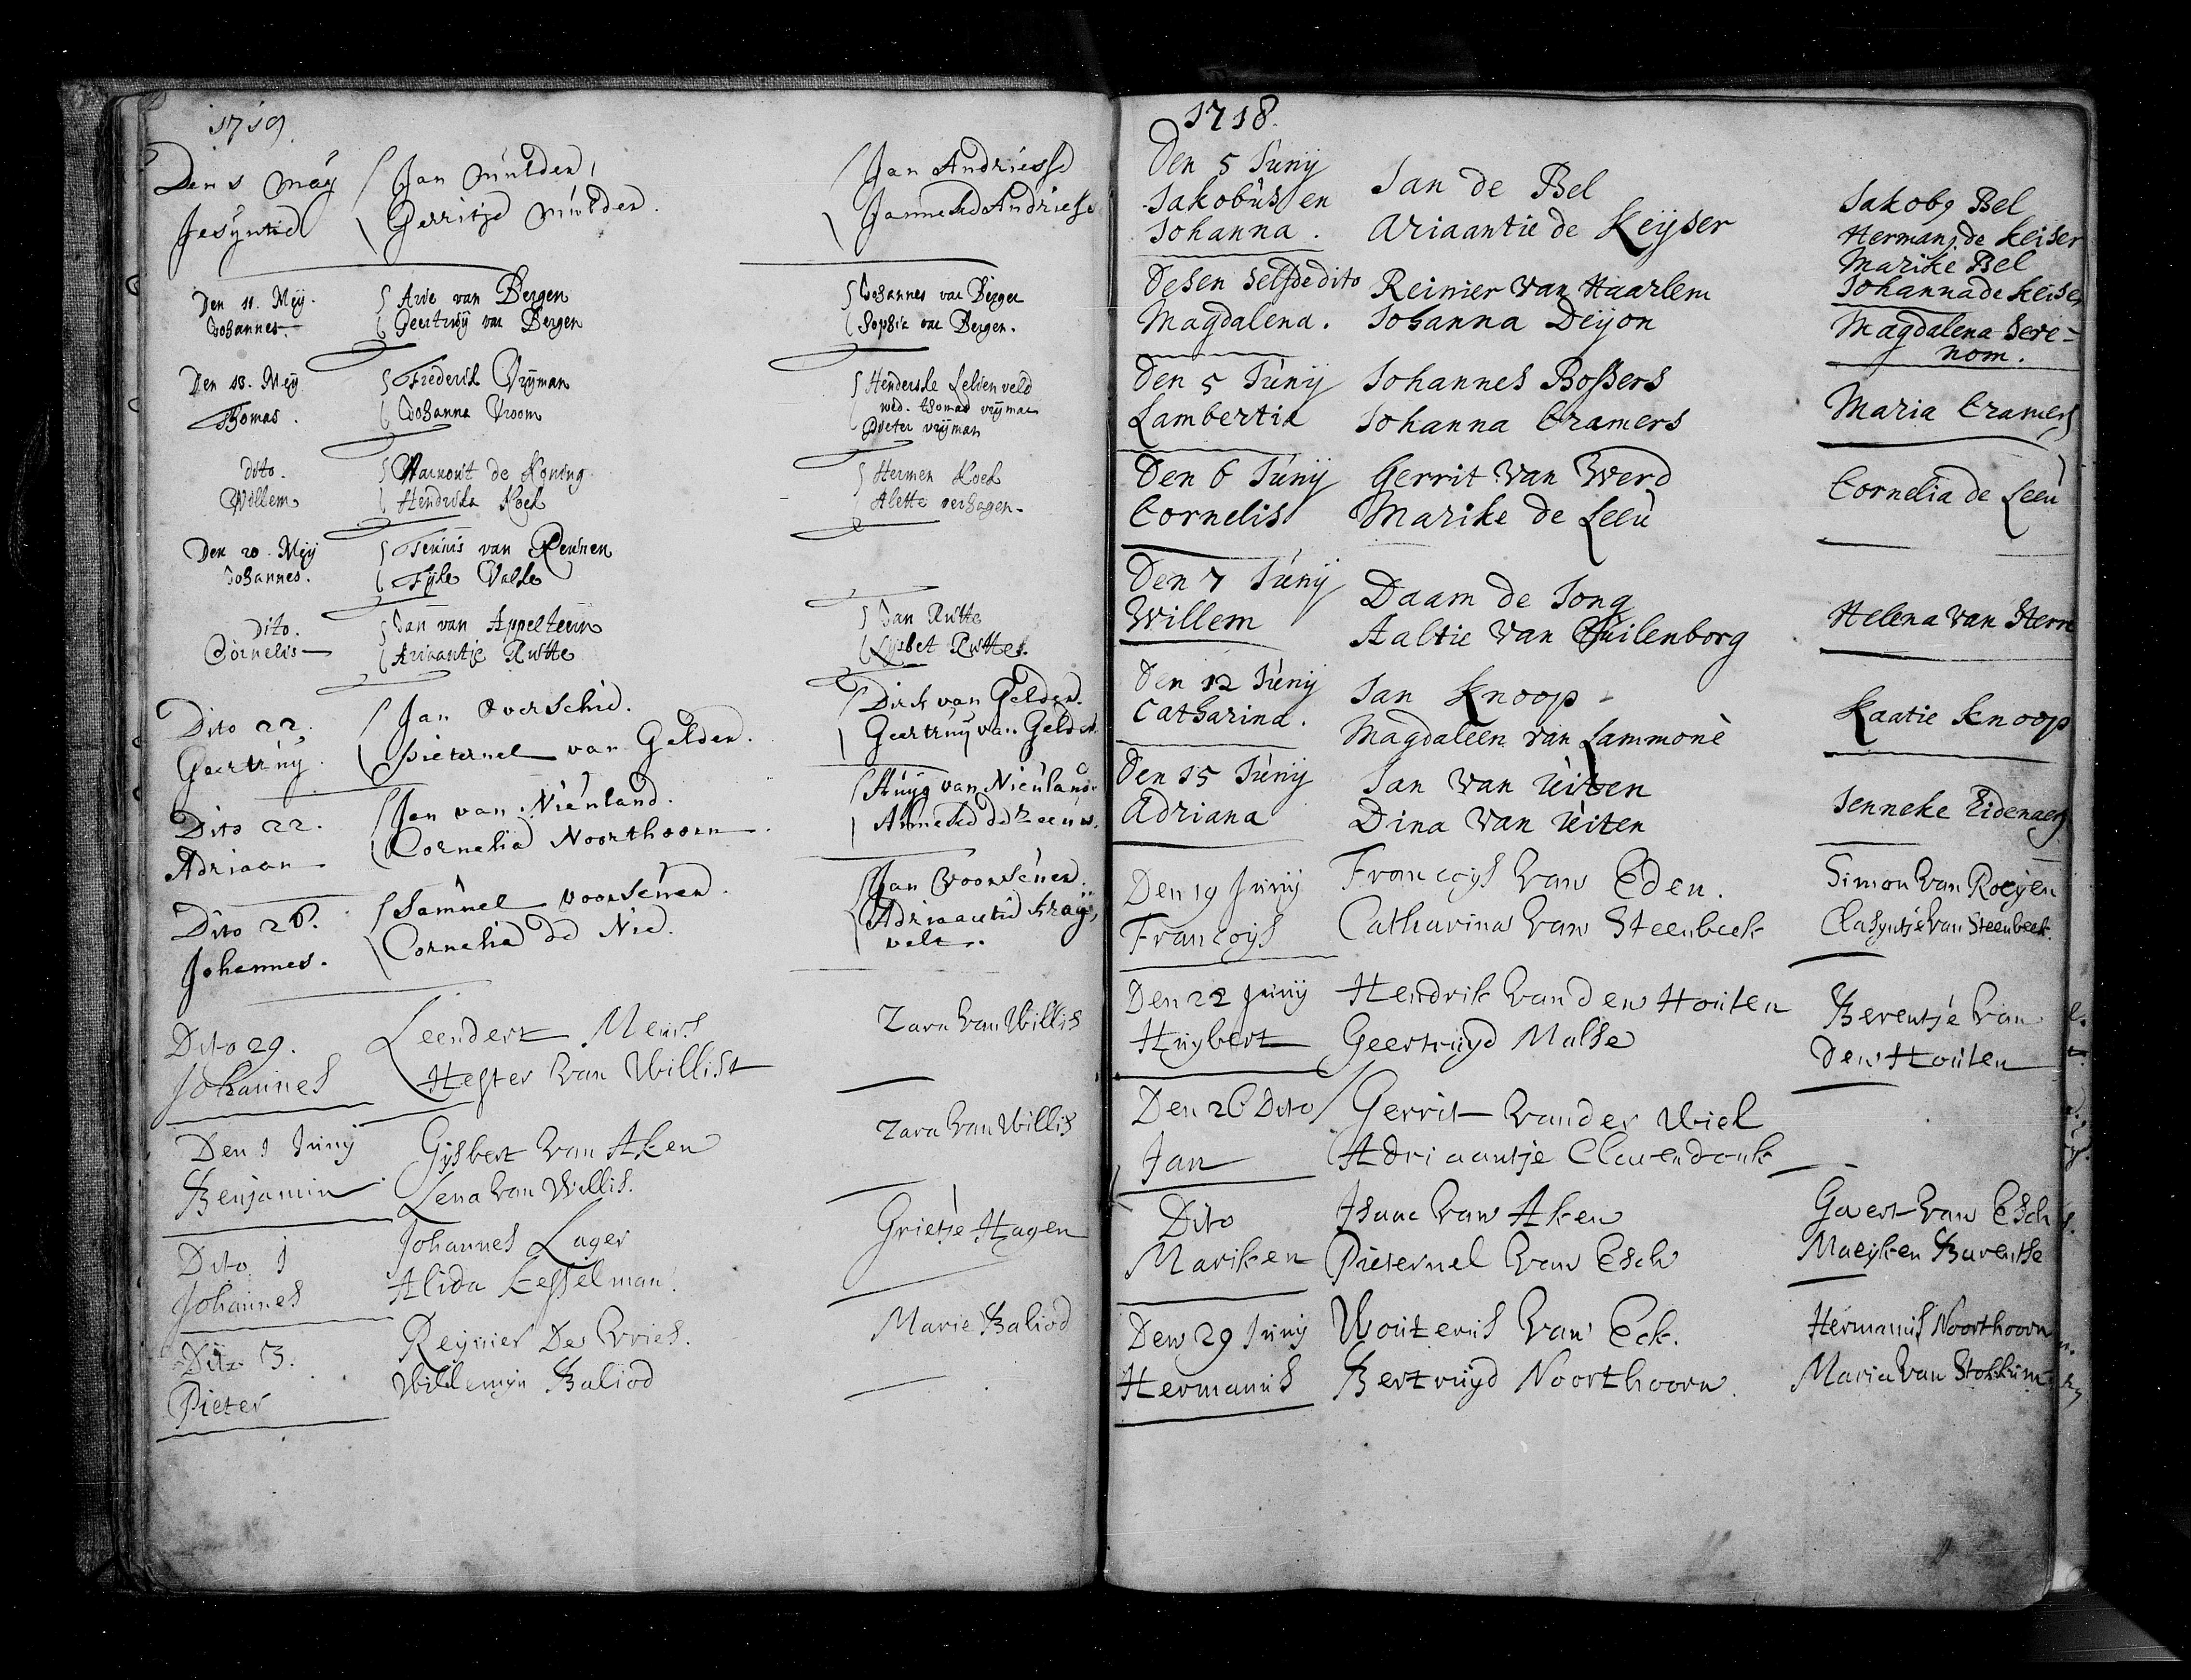 1719
Den 1 May
Jesyntie
Jan Mulder,
Gerritje Mulder.
Jan Andriesse
Janneke Andriesse
Den 11. Meij.
Johannes.
Arie van Bergen
Geertruij van Bergen
Johannes van Bergen
Sophia van Bergen.
Den 18. Meij
Thomas.
Frederik Vrijman
Johanna Vroom
Henderske Leldenveld
wed. Thomas vrijman
Pieter vrijman
dito.
Willem
Harnout de Koning
Hendrika Koek
Hermen Koek
Alette verhagen.
Den 20. Meij
Johannes.
Teunis van Reunen
Fijke Valke
Dito.
Cornelis
Jan van Appelteern
Ariaantje Rutte
Jan Rutte
Lijsbet Ruttes.
Dito 22.
Geertruij.
Jan Overschie.
Pieternel van Gelder.
Dirk van Gelder.
Geertruij van Gelder.
Dito 22.
Adriaan
Jan van Nieuland.
Cornelia Noorthoorn.
Huijg van Nieuland
Anneke de Zeeuw.
Dito 26.
Johannes.
Samuel Voorseuen.
Cornelia de Nie.
Jan Voorseuen.
Adriaantie Kraij
velt.
Dito 29.
Johannes
Leendert Meurs
Hester van Willist
Zara van Willis
Den 1 Junij
Benjamin
Gijsbert van Aken
Lena van Willis.
Zara van Willis
Dito 1
Johannes
Johannes Lager
Alida Kesselman.
Grietje Hagen
Dito 3.
Pieter
Reijnier De Vries.
Willemijn Baliod
Marie Baliod
1718.
Den 5 Junij
Jakobus en
Johanna.
Jan de Bel
Ariaantie de Keijser
Jakobs Bel
Hermans de Keiser
Marike Bel
Johanna de Keiser
Desen selfde dito
Magdalena.
Reinier van Haarlem
Johanna Deijon
Magdalena Seve-
nom.
Den 5 Junij
Lambertia
Johannes Bossers
Johanna Cramers
Maria Cramers
Den 6 Junij
Cornelis
Gerrit van Werd
Marike de Leeu
Cornelia de Leeu
Den 7 Junij
Willem
Daam de Jong
Aaltie van Cuilenborg
Helena van Herre
Den 12 Junij
Catharina.
Jan Knoop
Magdaleen van Lammonè
Kaatie Knoop
Den 15 Junij
Adriana
Jan van Uiten
Dina van Uiten
Jenneke Eidenaers
Den 19 Junij
Francoys
Francoys van Eden.
Catharina van Steenbeek
Simon van Roeijen
Clasyntje van Steenbeek.
Den 22 Junij
Huijbert
Hendrik van den Houten
Geertruyd Malse
Berentje van
Den Houten
Den 26 Dito
Jan
Gerrit vander Wiel
Adriaantje Clavendonk
Dito
Mariken
Isaac van Aken
Pieternel van Esch
Gvert van Esch
Maeyken Barentse
Den 29 Junij
Hermanus
Wouterus van Eck.
Bertruyd Noorthoorn.
Hermanus Noorthoorn
Maria van Stokkum